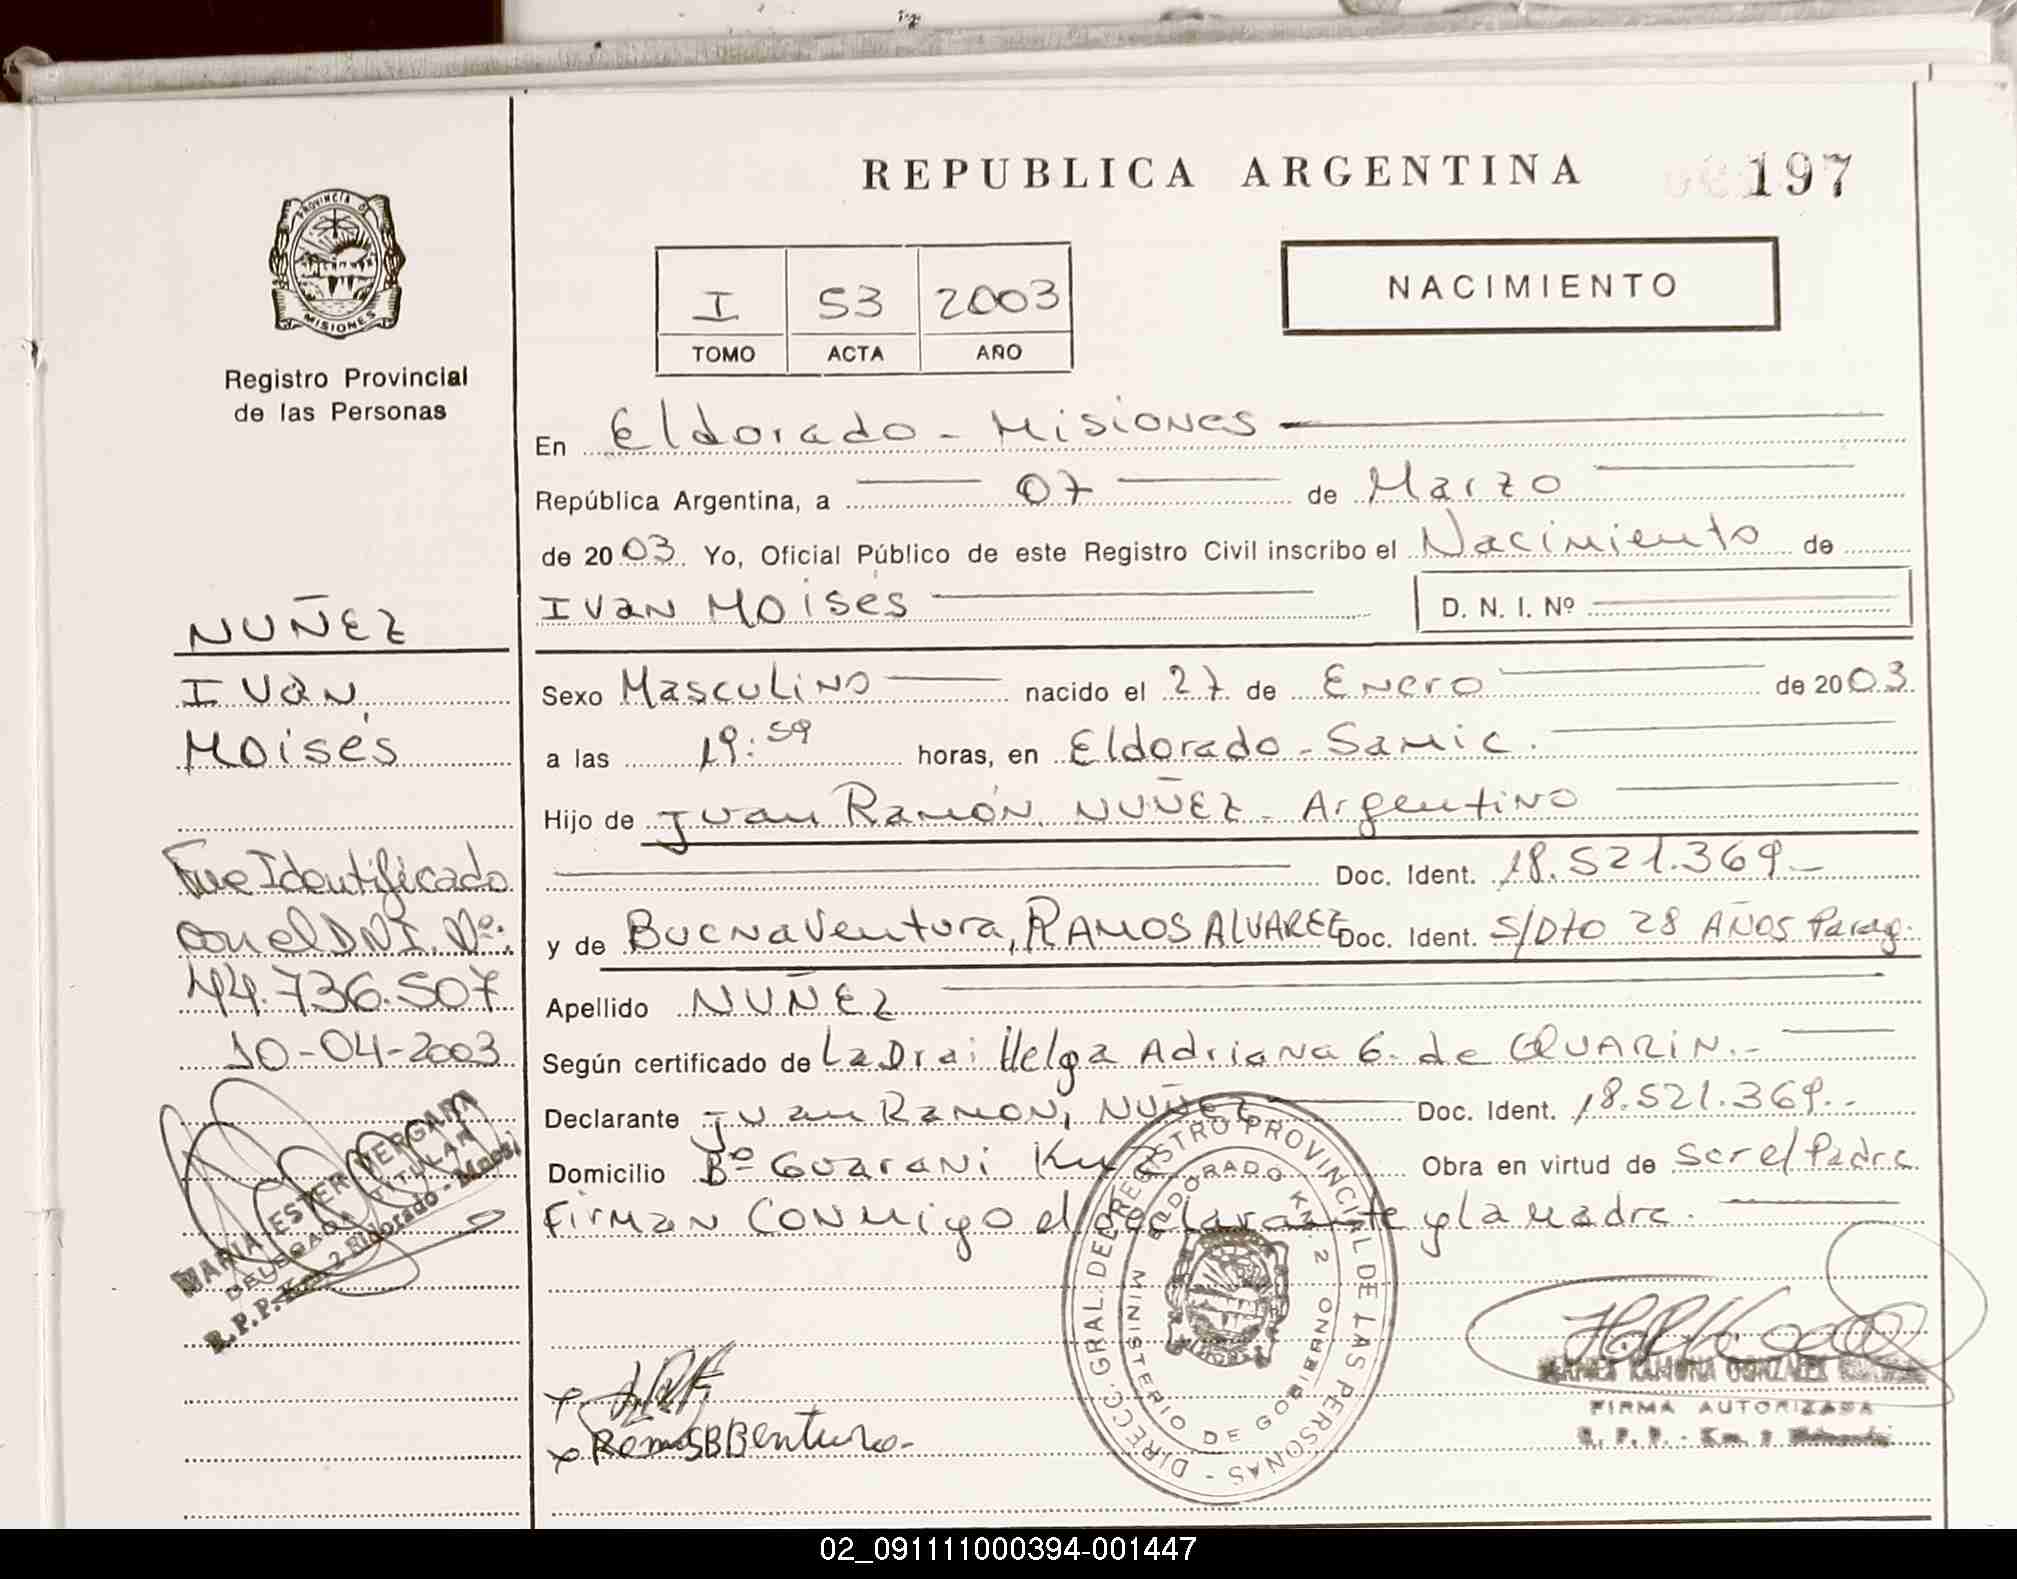 REPUBLICA ARGENTINA
197
PROVINCIA DE
MISIONES
Registro Provincial
de las Personas
I 53 2003
TOMO ACTA AÑO
NACIMIENTO
En Eldorado - Misiones
República Argentina, a 07 de Marzo
de 2003. Yo, Oficial Público de este Registro Civil inscribo el Nacimiento de
Ivan Moisés D. N. I. Nº
Sexo Masculino nacido el 27 de Enero de 2003.
a las 19:59 horas, en Eldorado - Samic.
Hijo de Juan Ramón, NUÑEZ - Argentino
Doc. Ident. 18.521.369.-
y de Buenaventura, RAMOS ALVAREZ Doc. Ident. S/Dto 28 AÑOS Parag.
Apellido NUÑEZ
Según certificado de La Dra: Helga Adriana G. de QUARIN.-
Declarante Juan Ramon, NUÑEZ Doc. Ident. 18.521.369.-
Domicilio Bº Guarani Km 2 Obra en virtud de Ser el Padre
Firman Conmigo el declarante y la Madre.
NUÑEZ
Ivan
Moisés
Fue Identificado
con el D.N.I. Nº:
44.736.507
10-04-2003
MARIA ESTER VERGARA
DELEGADA TITULAR
R.P.P. Km 2 Eldorado - Mnes.
DIRECC. GRAL. DEL REGISTRO PROVINCIAL DE LAS PERSONAS -
ELDORADO KM. 2
MINISTERIO DE GOBIERNO
Ramos B Bentura
RAMONA GONZALEZ
FIRMA AUTORIZADA
R. P. P. - Km. 2
02_091111000394-001447